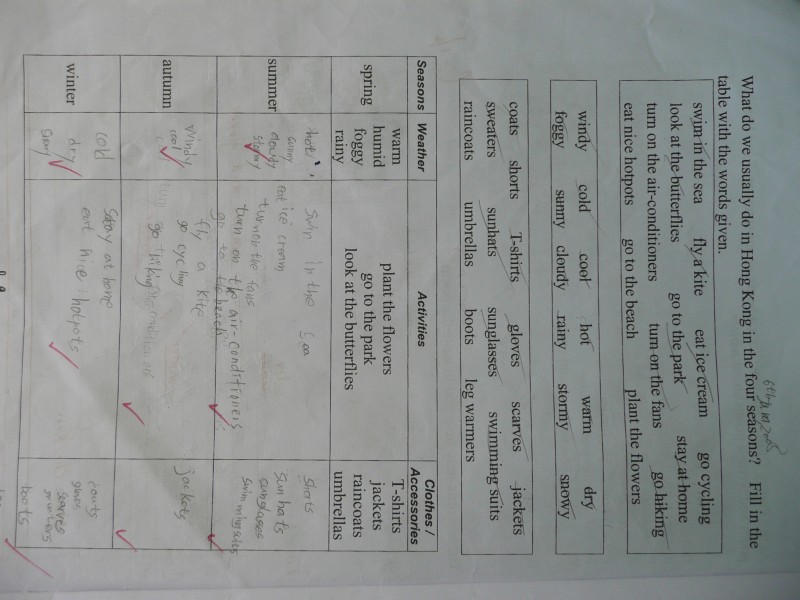 What do we usually do in Hong Kong in the four seasons? Fill in the
table with the words given.
swim in the sea fly a kite eat ice cream go cycling
look at the butterflies go to the park stay at home
turn on the air-conditioners turn on the fans go hiking
eat nice hotpots go to the beach plant the flowers
windy cold cool hot warm dry
foggy sunny cloudy rainy stormy snowy
coats shorts T-shirts gloves scarves jackets
sweaters sunhats sunglasses swimming suits
raincoats umbrellas boots leg warmers
Seasons Weather Activities Clothes / Accessories
spring
warm
humid
foggy
rainy
plant the flowers
go to the park
look at the butterflies
T-shirts
jackets
raincoats
umbrellas
summer
hot
sunny
cloudy
stormy
Swim in the
eat ice cream
turn on the fans
turn on the air-conditioners
go to the beach
sunhats
sunglasses
autumn
windy
cool
fly a kite
go cycling
go
jackets
winter
cold
dry
at home
eat nice hotpots
boots